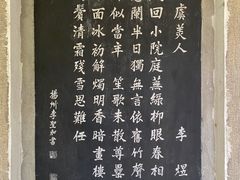 虞美人
李煜
回小院庭蕪綠柳眼春相
闌半日獨無言依舊竹聲
似當年笙歌未散尊罍
面冰初解燭明香暗畫樓
鬢清霜殘雪思難任
揚州李聖和書